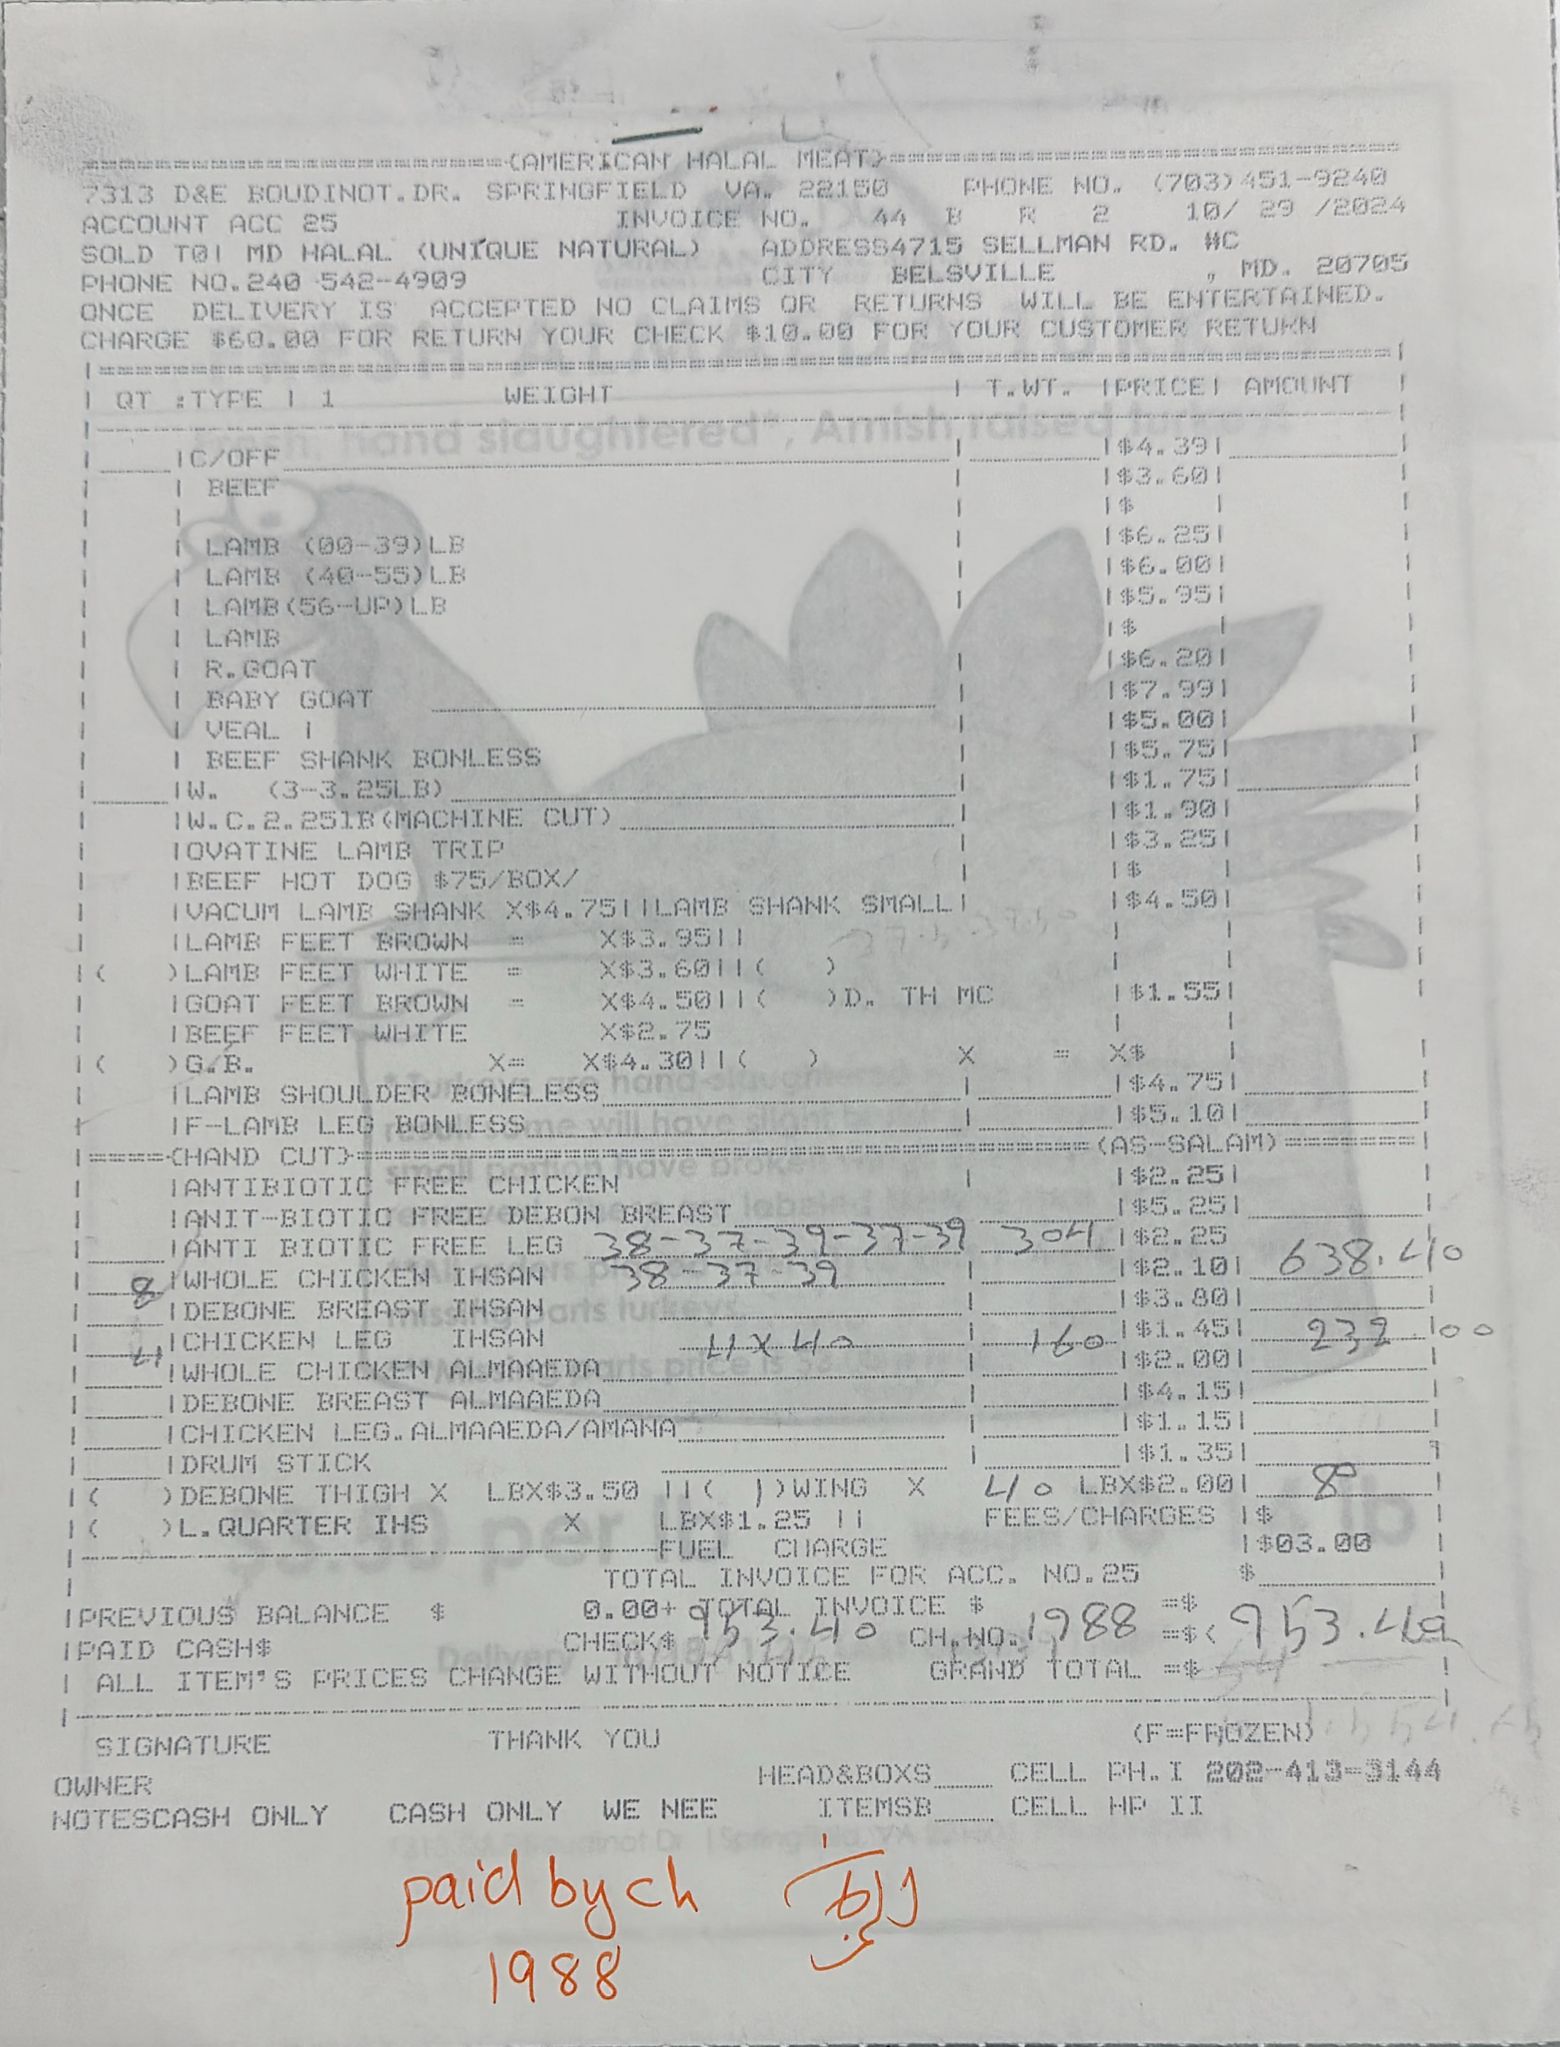 (AMERICAN HALAL MEAT)
7313 D&E BOUDINOT.DR. SPRINGFIELD VA. 22150 PHONE NO. (703)451-9240
ACCOUNT ACC 25 INVOICE NO. 44 B R 2 10/ 29 /2024
SOLD TO| MD HALAL (UNIQUE NATURAL) ADDRESS4715 SELLMAN RD. #C
PHONE NO.240 542-4909 CITY BELSVILLE , MD. 20705
ONCE DELIVERY IS ACCEPTED NO CLAIMS OR RETURNS WILL BE ENTERTAINED.
CHARGE $60.00 FOR RETURN YOUR CHECK $10.00 FOR YOUR CUSTOMER RETURN
QT :TYPE | 1 WEIGHT | T.WT. |PRICE| AMOUNT
C/OFF $4.39
BEEF $3.60
$
LAMB (00-39)LB $6.25
LAMB (40-55)LB $6.00
LAMB(56-UP)LB $5.95
LAMB $
R.GOAT $6.20
BABY GOAT $7.99
VEAL | $5.00
BEEF SHANK BONLESS $5.75
W. (3-3.25LB) $1.75
W.C.2.25lB(MACHINE CUT) $1.90
OVATINE LAMB TRIP $3.25
BEEF HOT DOG $75/BOX/ $
VACUM LAMB SHANK X$4.75||LAMB SHANK SMALL| $4.50
LAMB FEET BROWN = X$3.95||
( )LAMB FEET WHITE = X$3.60||( )
GOAT FEET BROWN = X$4.50||( )D. TH MC $1.55
BEEF FEET WHITE X$2.75
( )G.B. X= X$4.30||( ) X = X$
LAMB SHOULDER BONELESS $4.75
F-LAMB LEG BONLESS $5.10
=====(HAND CUT)=====(AS-SALAM)=======
ANTIBIOTIC FREE CHICKEN $2.25
ANIT-BIOTIC FREE DEBON BREAST $5.25
ANTI BIOTIC FREE LEG 38-37-39-37-39 304 $2.25
8 WHOLE CHICKEN IHSAN 38-37-39 $2.10 638.40
DEBONE BREAST IHSAN $3.80
4 CHICKEN LEG IHSAN 4x40 160 $1.45 232 00
WHOLE CHICKEN ALMAAEDA $2.00
DEBONE BREAST ALMAAEDA $4.15
CHICKEN LEG.ALMAAEDA/AMANA $1.15
DRUM STICK $1.35
( )DEBONE THIGH X LBX$3.50 ||( 1)WING X 40 LBX$2.00| 80
( )L.QUARTER IHS X LBX$1.25 || FEES/CHARGES |$
FUEL CHARGE |$03.00
TOTAL INVOICE FOR ACC. NO.25 $
PREVIOUS BALANCE $ 0.00+ TOTAL INVOICE $ =$
PAID CASH$ CHECK$ 953.40 CH.NO. 1988 =$( 953.40
ALL ITEM'S PRICES CHANGE WITHOUT NOTICE GRAND TOTAL =$
SIGNATURE THANK YOU (F=FROZEN)
OWNER HEAD&BOXS CELL PH.I 202-413-3144
NOTESCASH ONLY CASH ONLY WE NEE ITEMSB CELL HP II
paid by ch
1988